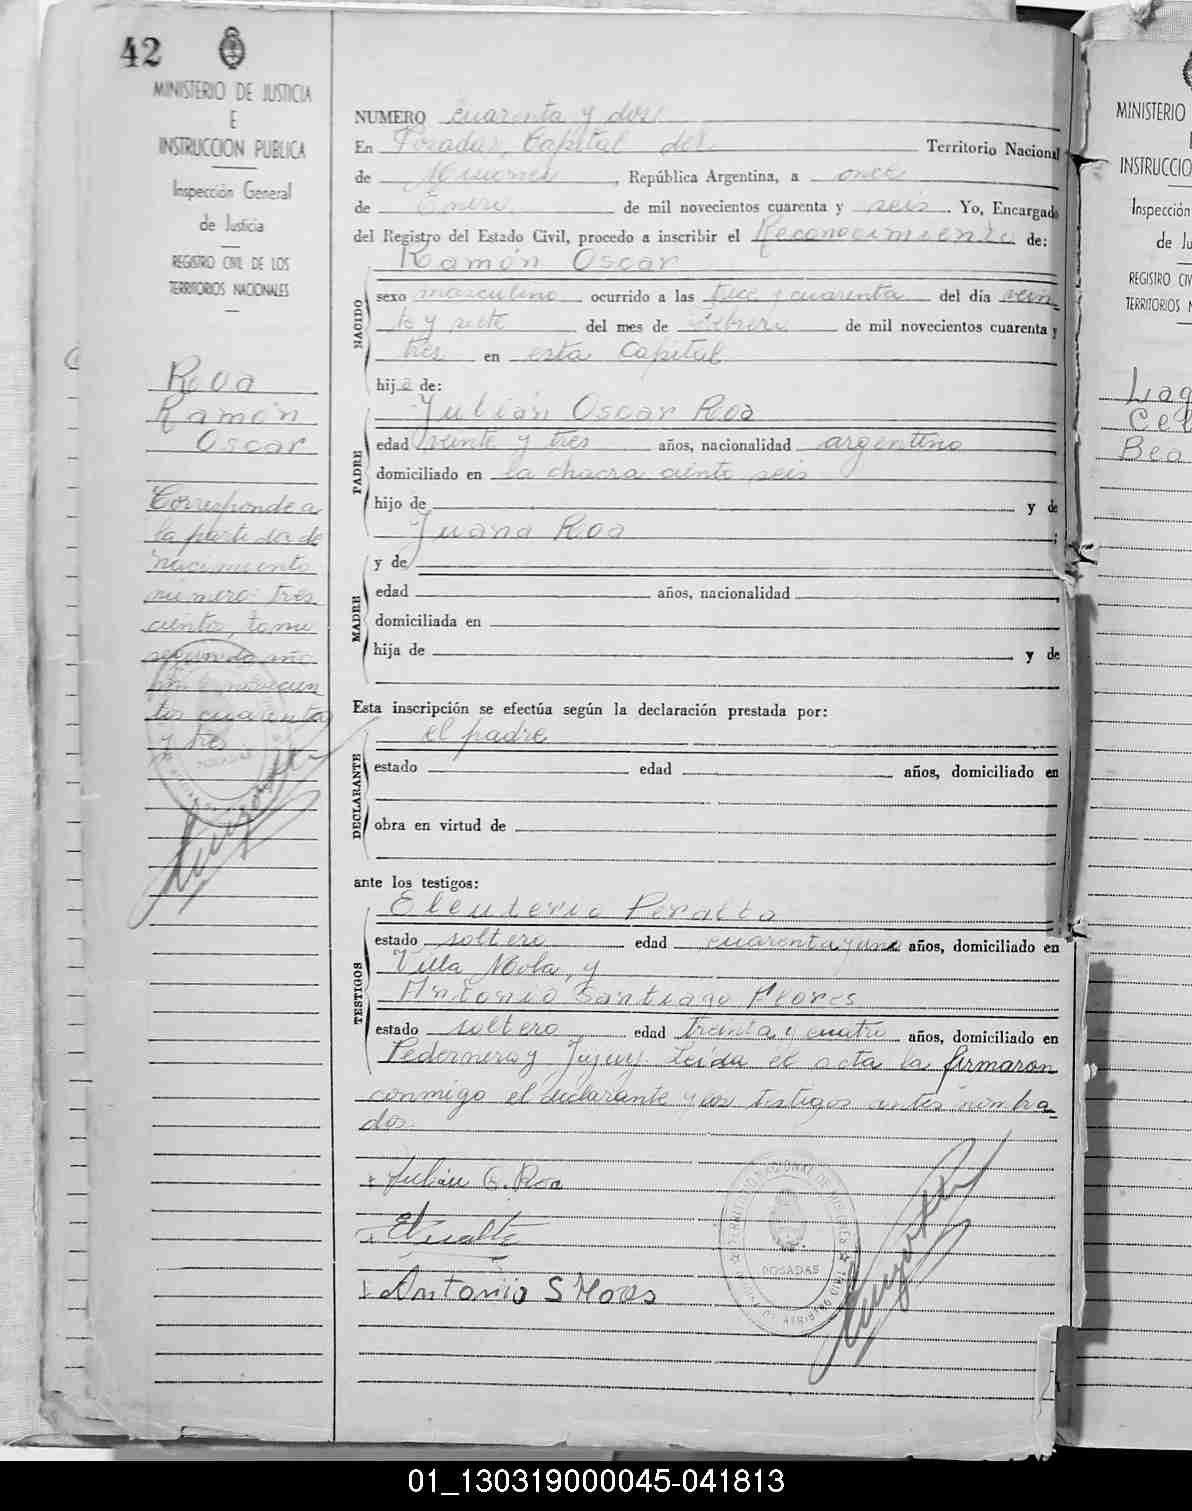 42
MINISTERIO DE JUSTICIA
E
INSTRUCCION PUBLICA
Inspección General
de Justicia
REGISTRO CIVIL DE LOS
TERRITORIOS NACIONALES
Roa
Ramón
Oscar
Corresponde a
la partida de
nacimiento
numero tres
cientos, tomo
segundo año
mil novecien
tos cuarenta
y tres
NUMERO cuarenta y dos
En Posadas, Capital del Territorio Nacional
de Misiones, República Argentina, a once
de Enero de mil novecientos cuarenta y seis. Yo, Encargado
del Registro del Estado Civil, procedo a inscribir el Reconocimiento de:
Ramón Oscar
NACIDO
sexo masculino ocurrido a las trece y cuarenta del día vein
te y siete del mes de Febrero de mil novecientos cuarenta y
tres en esta Capital
hijo de:
Julián Oscar Roa
PADRE
edad veinte y tres años, nacionalidad argentino
domiciliado en la chacra ciento seis
hijo de y de
Juana Roa ;
y de
MADRE
edad años, nacionalidad ,
domiciliada en
hija de y de
Esta inscripción se efectúa según la declaración prestada por:
el padre
DECLARANTE
estado edad años, domiciliado en
obra en virtud de
ante los testigos:
Eleuterio Peralta
TESTIGOS
estado soltero edad cuarenta y uno años, domiciliado en
Villa Mola, y
Antonio Santiago Flores
estado soltero edad treinta y cuatro años, domiciliado en
Pedernera y Jujuy. Leida el acta la firmaron
conmigo el declarante y los testigos antes nombra
dos.
Julián O. Roa
EPeralta
Antonio S Flores
POSADAS
MINISTERIO
INSTRUCCIO
Inspección
de Ju
REGISTRO CIV
TERRITORIOS N
Lag
Cel
Bea
01_130319000045-041813